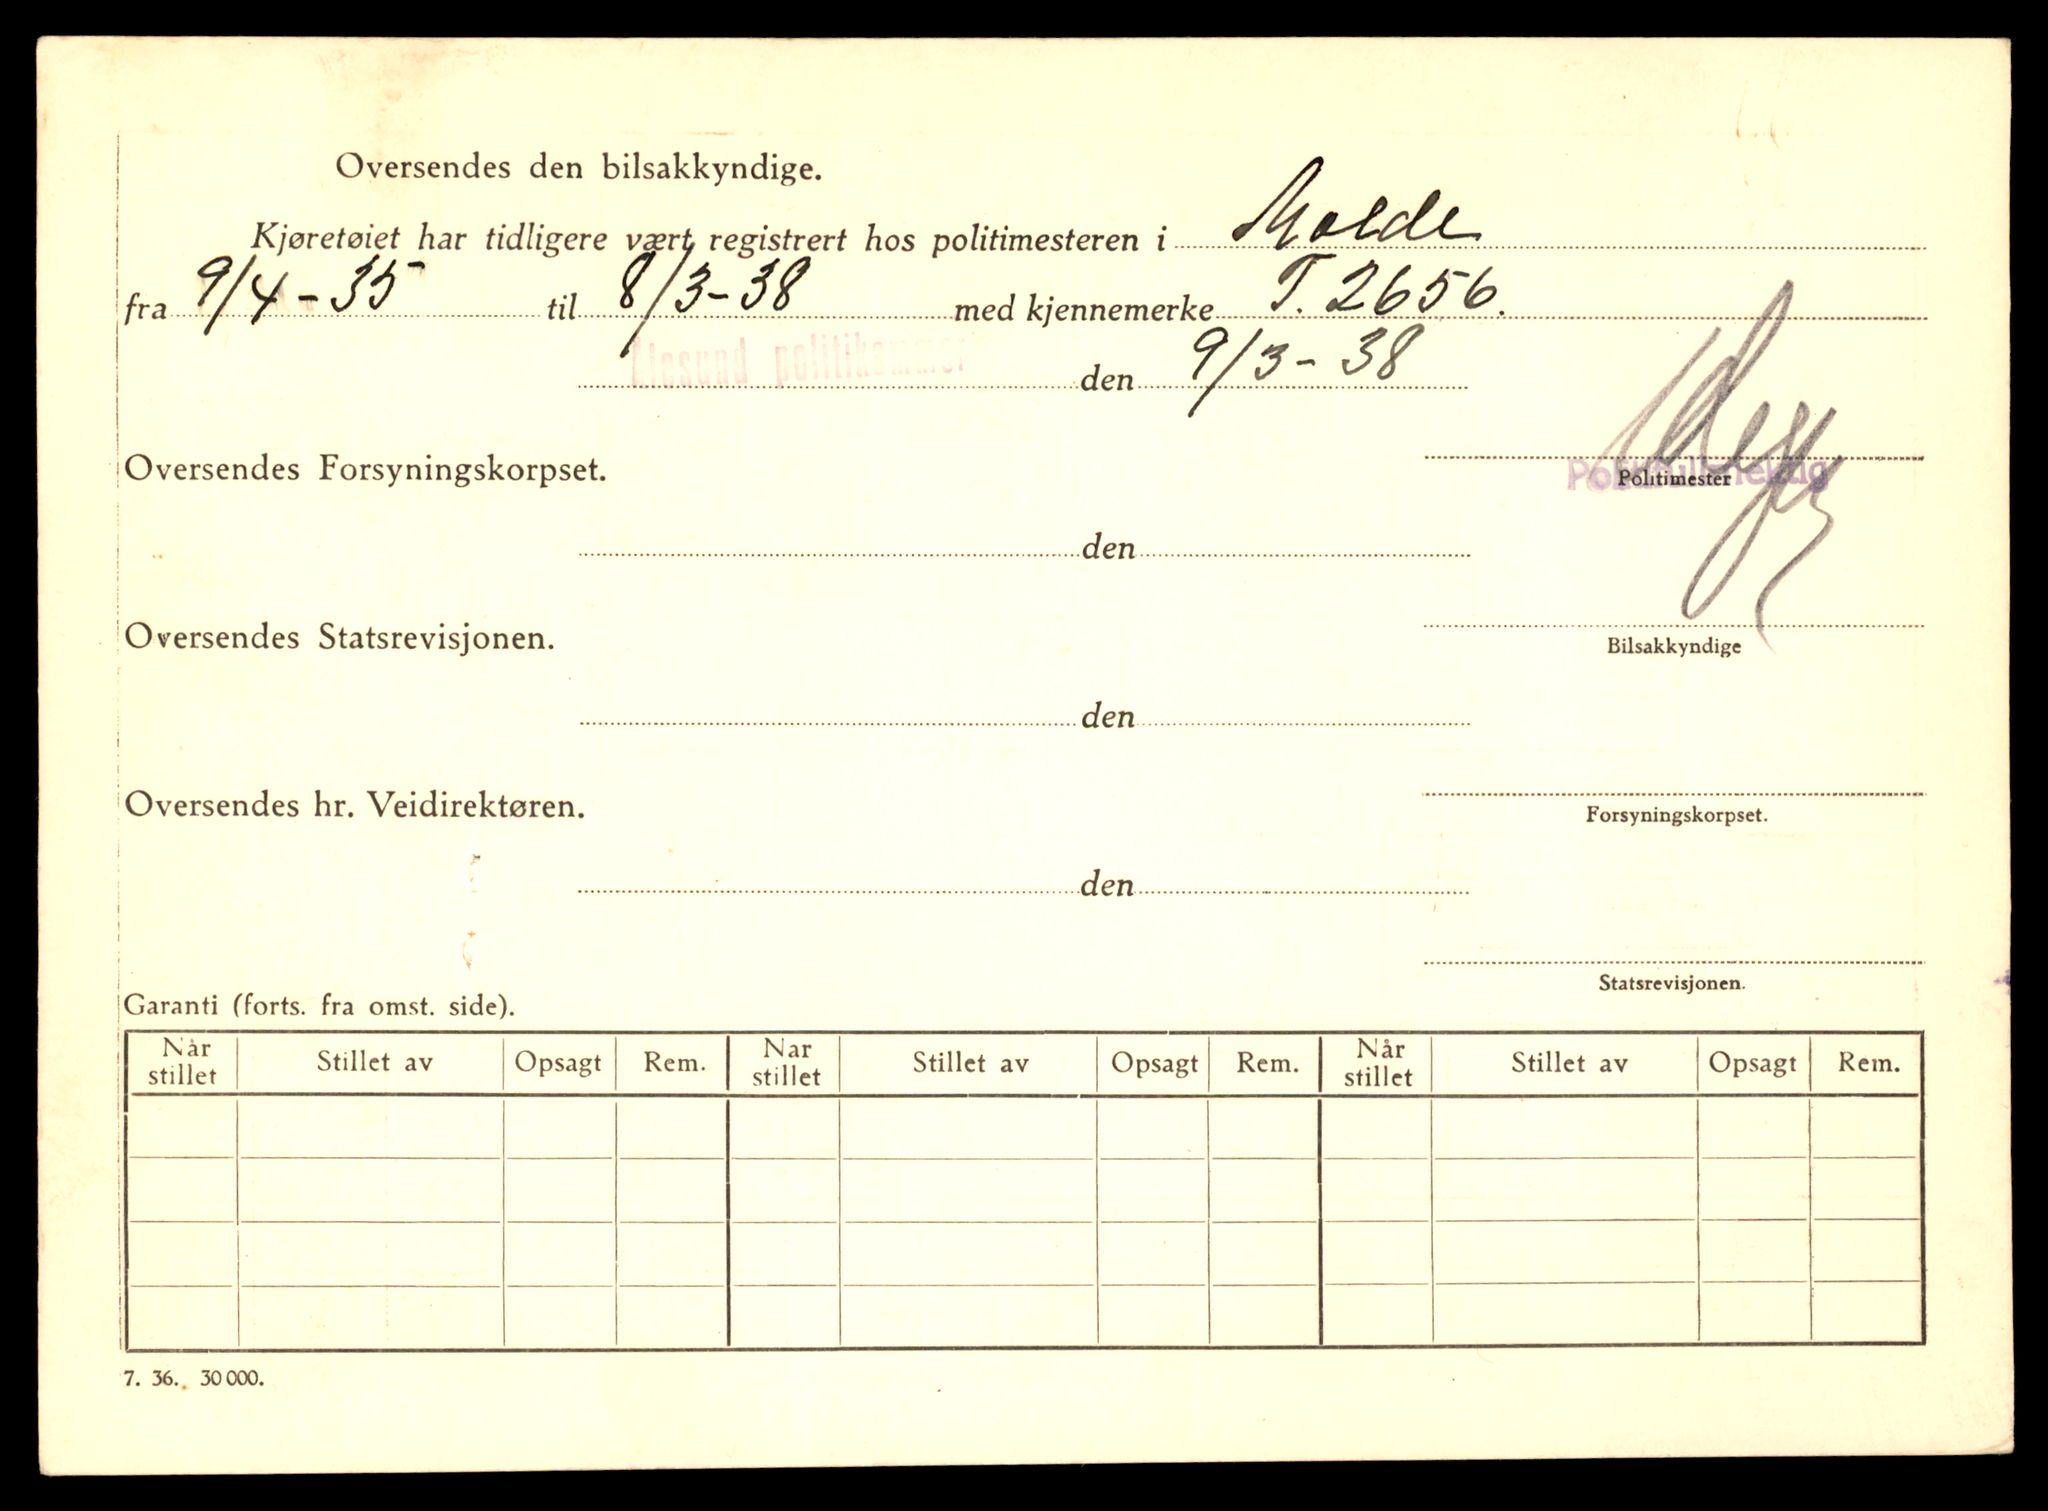 Oversendes den bilsakkyndige.
Kjøretøiet har tidligere vært registrert hos politimesteren i Molde
fra 9/4-35 til 8/3-38 med kjennemerke T. 2656.
Ålesund politikammer den 9/3-38
Oversendes Forsyningskorpset.
Politifullmektig
Politimester
den
Oversendes Statsrevisjonen.
Bilsakkyndige
den
Oversendes hr. Veidirektøren.
Forsyningskorpset.
den
Statsrevisjonen.
Garanti (forts. fra omst. side).
Når stillet Stillet av Opsagt Rem. Nar stillet Stillet av Opsagt Rem. Når stillet Stillet av Opsagt Rem.
7. 36. 30 000.